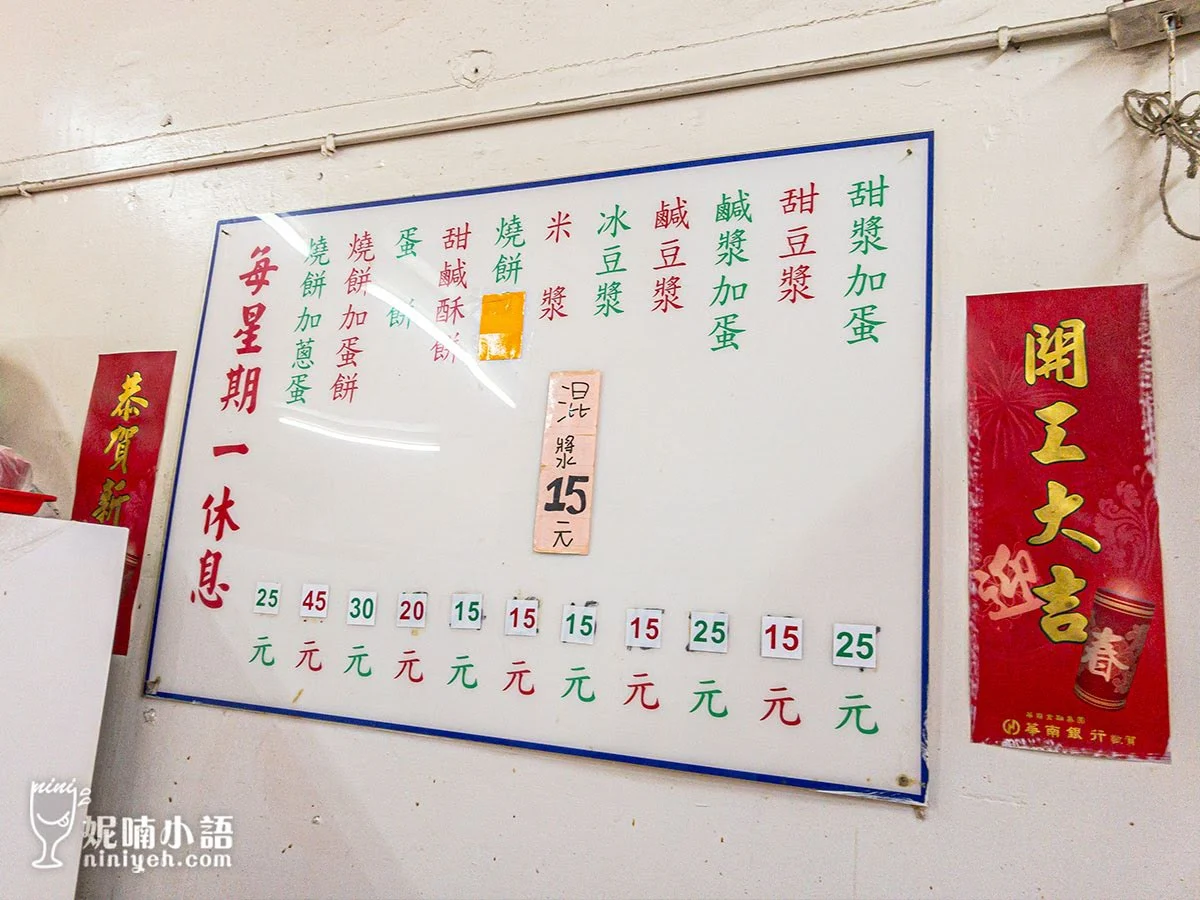 甜漿加蛋 25元
甜豆漿 15元
鹹漿加蛋 25元
鹹豆漿 15元
冰豆漿 15元
米漿 15元
燒餅 15元
甜鹹酥餅 20元
蛋餅 30元
燒餅加蛋餅 45元
燒餅加蔥蛋 25元
每星期一休息
混漿15元
開工大吉
迎
春
華南金融集團
華南銀行敬賀
恭賀新
nini
妮喃小語
niniyeh.com